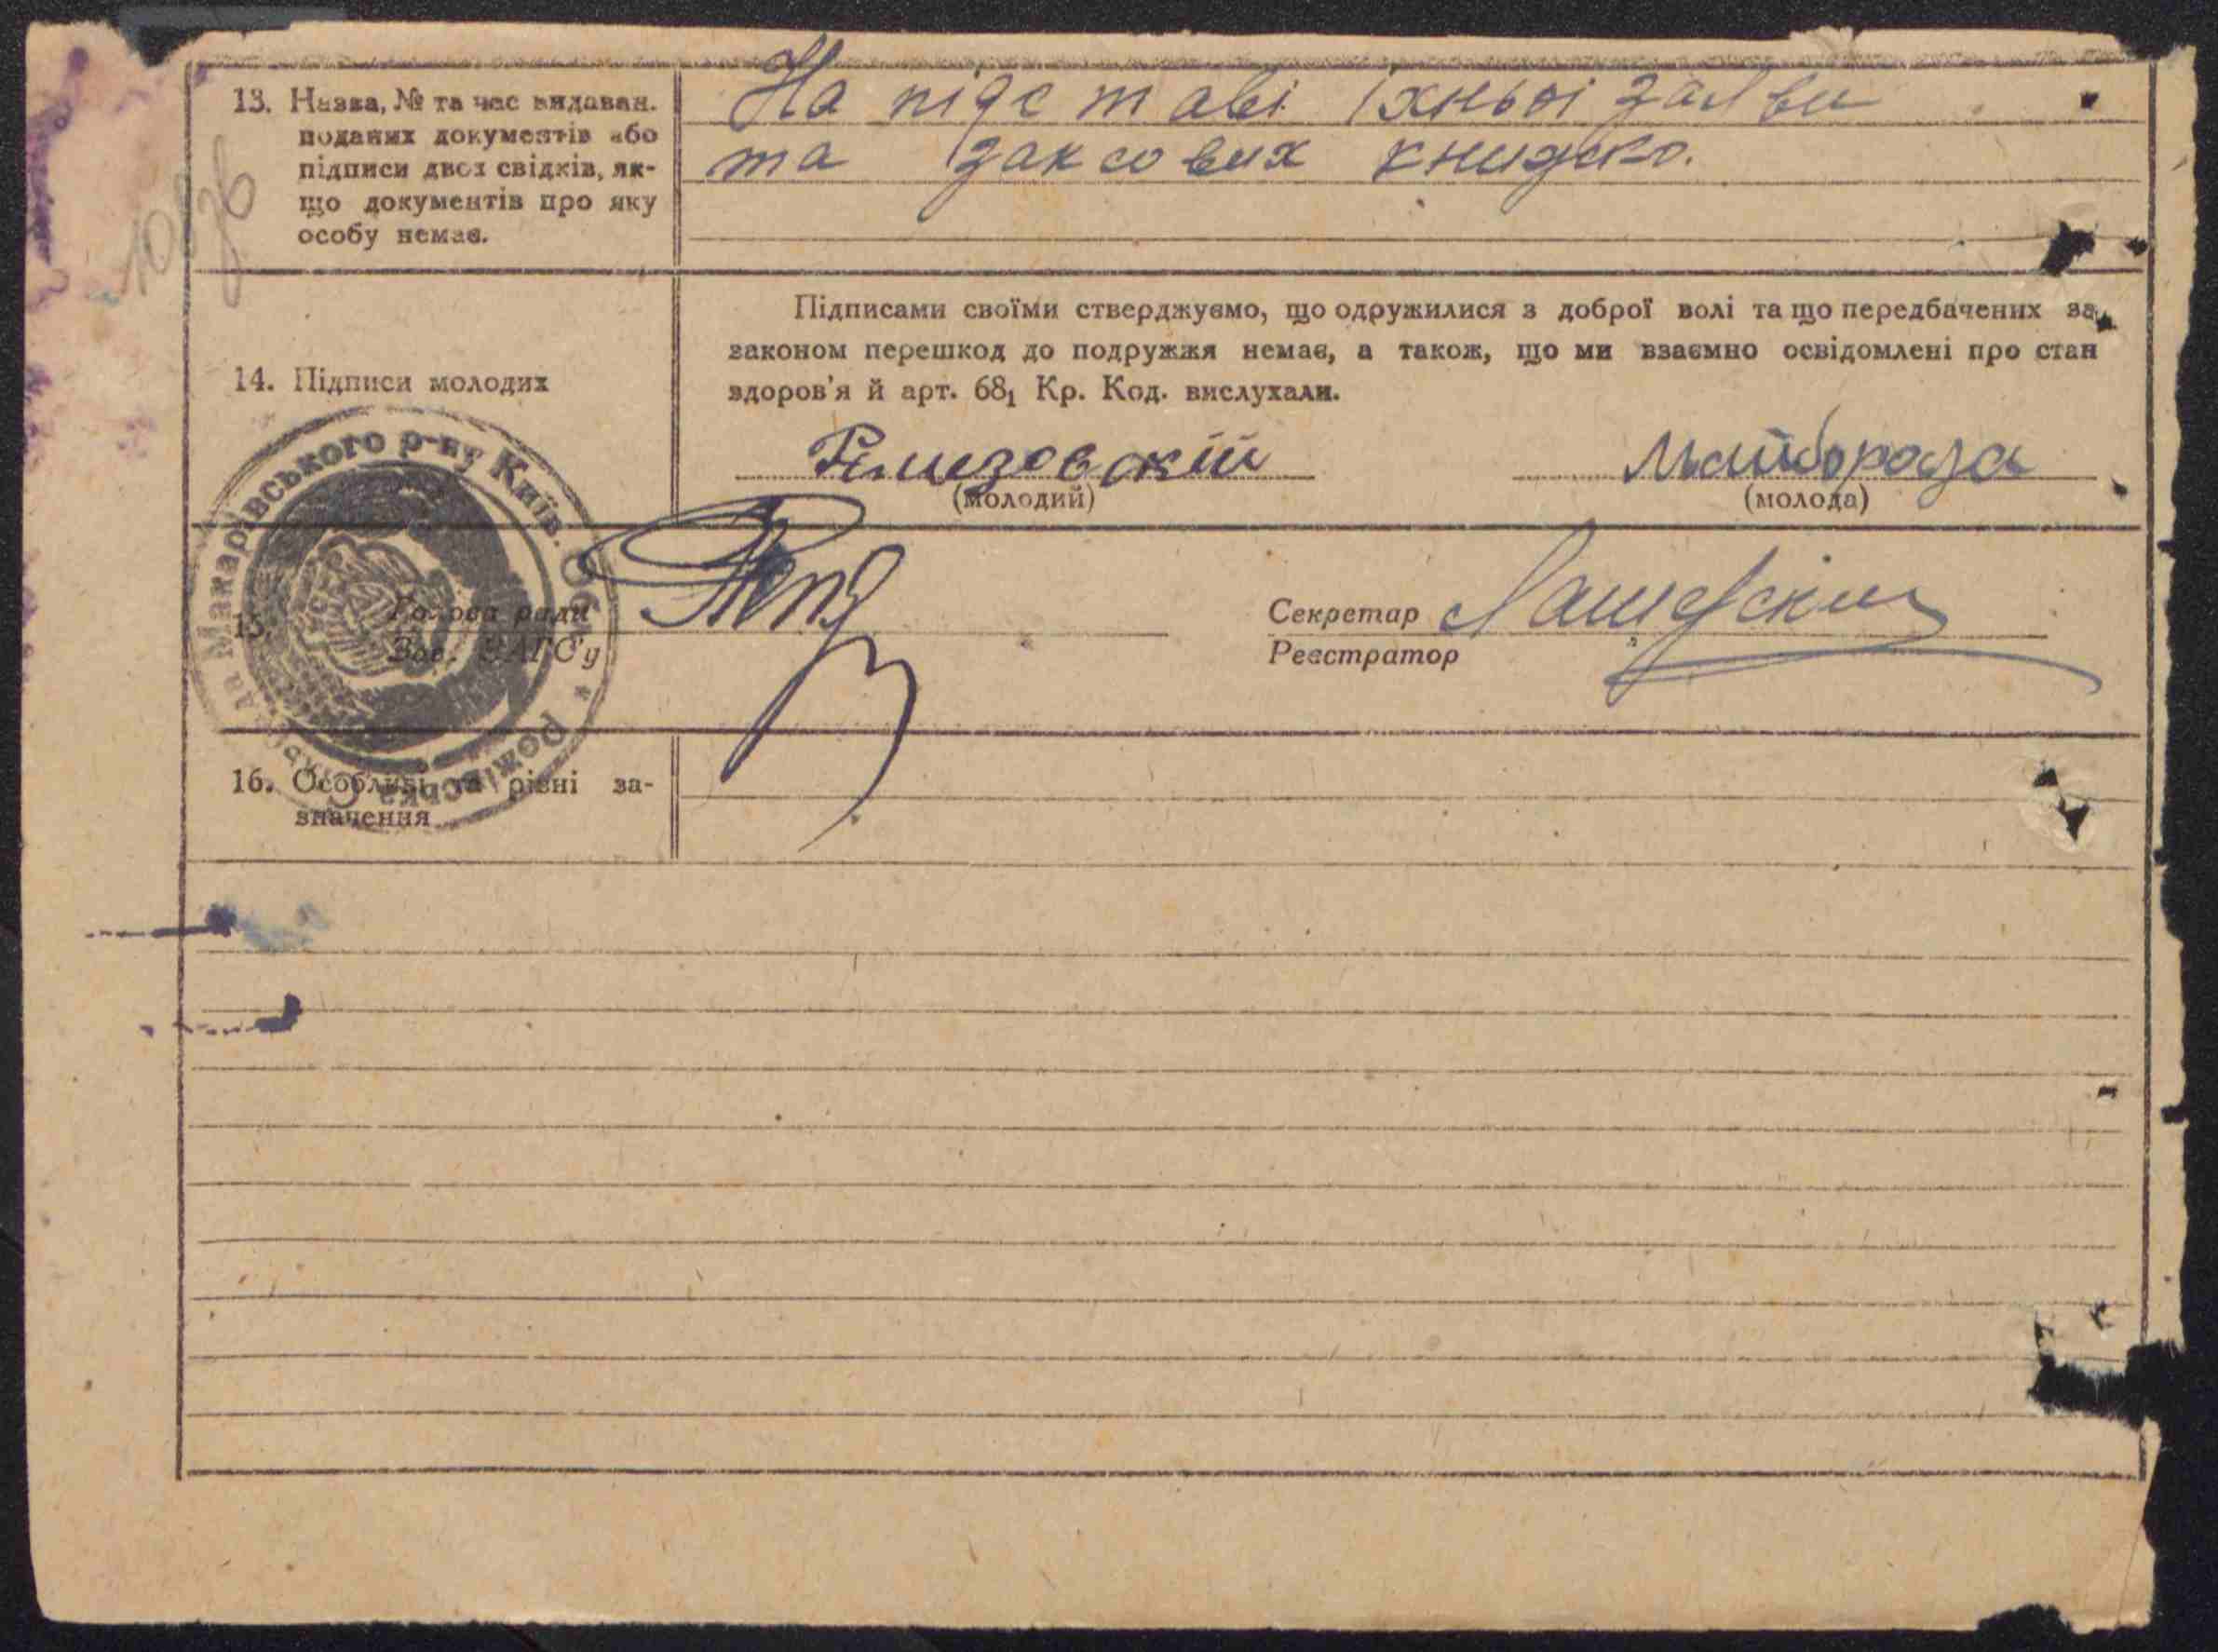 13. Назва, № та час видаван.
поданих документів або
підписи двох свідків, як-
що документів про яку
особу немає.
На підставі їхньої заяви
та загсових книжко.
14. Підписи молодих
Підписами своїми стверджуємо, що одружилися з доброї волі та що передбачених за
законом перешкод до подружжя немає, а також, що ми взаємно освідомлені про стан
здоров'я й арт. 68₁ Кр. Код. вислухали.
Майборода
(молодий)
(молода)
Макарівського р-ну Київ. Обл. * Рожівська
15.
Голова ради
Зав. ЗАГС'у
Секретар
Реєстратор
16. Особливі та різні за-
значення